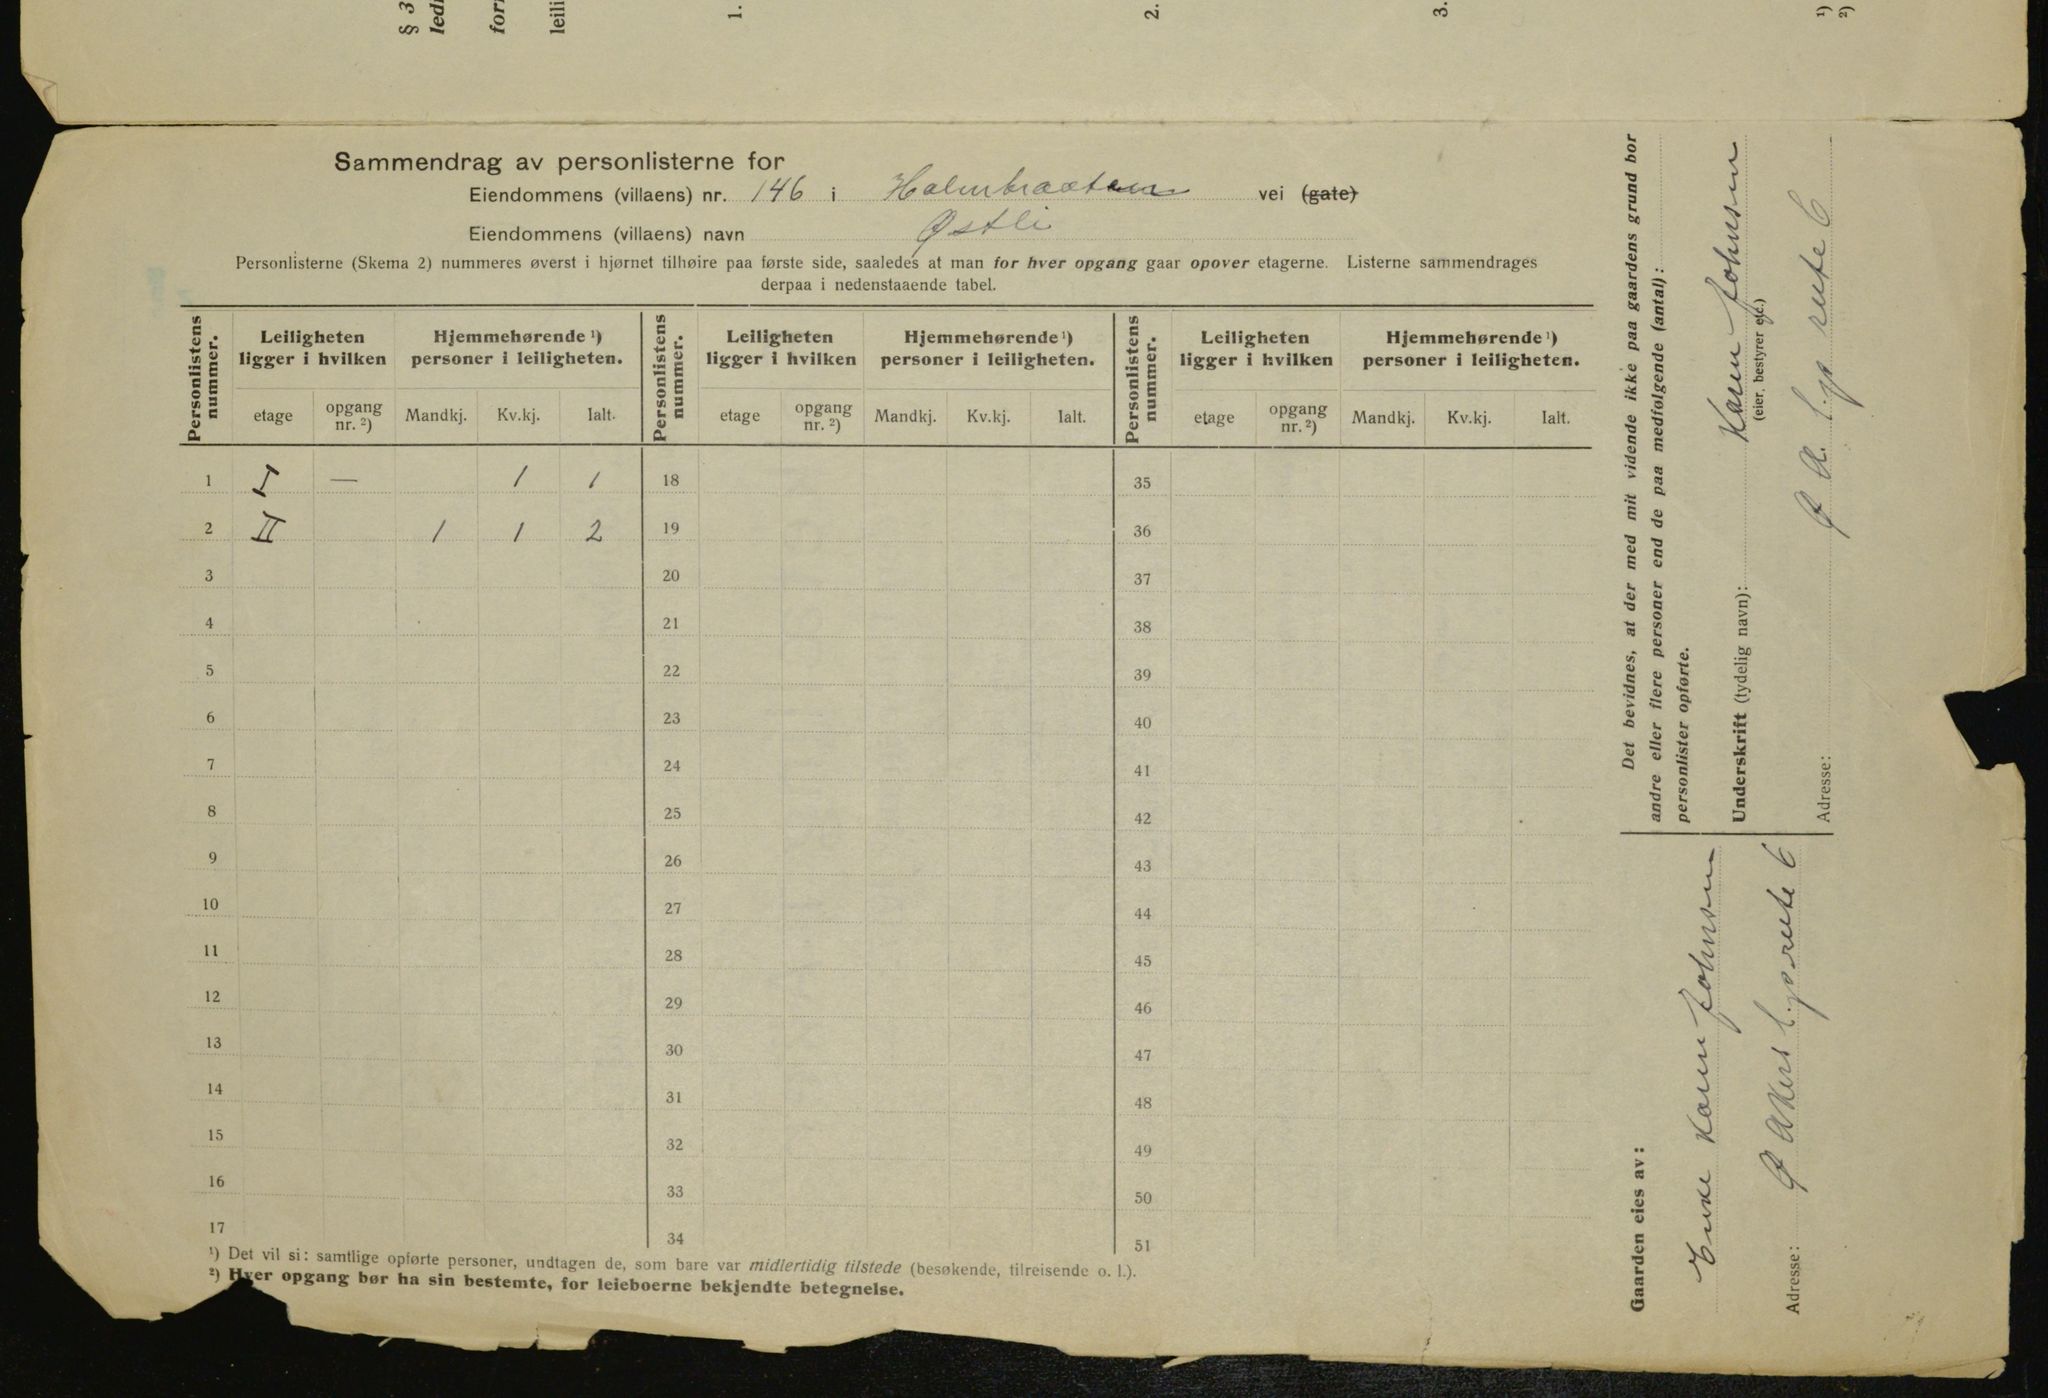 § 3
led
for
leili
1.
2.
3.
¹)
²)
Sammendrag av personlisterne for
Eiendommens (villaens) nr. 146 i vei (gate)
Eiendommens (villaens) navn Østli
Personlisterne (Skema 2) nummeres øverst i hjørnet tilhøire paa første side, saaledes at man for hver opgang gaar opover etagerne. Listerne sammendrages
derpaa i nedenstaaende tabel.
Personlistens nummer. Leiligheten ligger i hvilken Hjemmehørende ¹) personer i leiligheten. Personlistens nummer. Leiligheten ligger i hvilken Hjemmehørende ¹) personer i leiligheten. Personlistens nummer. Leiligheten ligger i hvilken Hjemmehørende ¹) personer i leiligheten.
etage opgang nr. ²) Mandkj. Kv.kj. Ialt. etage opgang nr. ²) Mandkj. Kv.kj. Ialt. etage opgang nr. ²) Mandkj. Kv.kj. Ialt.
1 I — 1 1 18 35
2 II 1 1 2 19 36
3 20 37
4 21 38
5 22 39
6 23 40
7 24 41
8 25 42
9 26 43
10 27 44
11 28 45
12 29 46
13 30 47
14 31 48
15 32 49
16 33 50
17 34 51
¹) Det vil si: samtlige opførte personer, undtagen de, som bare var midlertidig tilstede (besøkende, tilreisende o. l.).
²) Hver opgang bør ha sin bestemte, for leieboerne bekjendte betegnelse.
Det bevidnes, at der med mit vidende ikke paa gaardens grund bor
andre eller flere personer end de paa medfølgende (antal):
personlister opførte.
Underskrift (tydelig navn): Karen Johnsen
(eier, bestyrer etc.)
Adresse: Ø A. l.gs rute 6
Gaarden eies av:
Enke Karen Johnsen
Adresse: Ø Akers l.gsrute 6